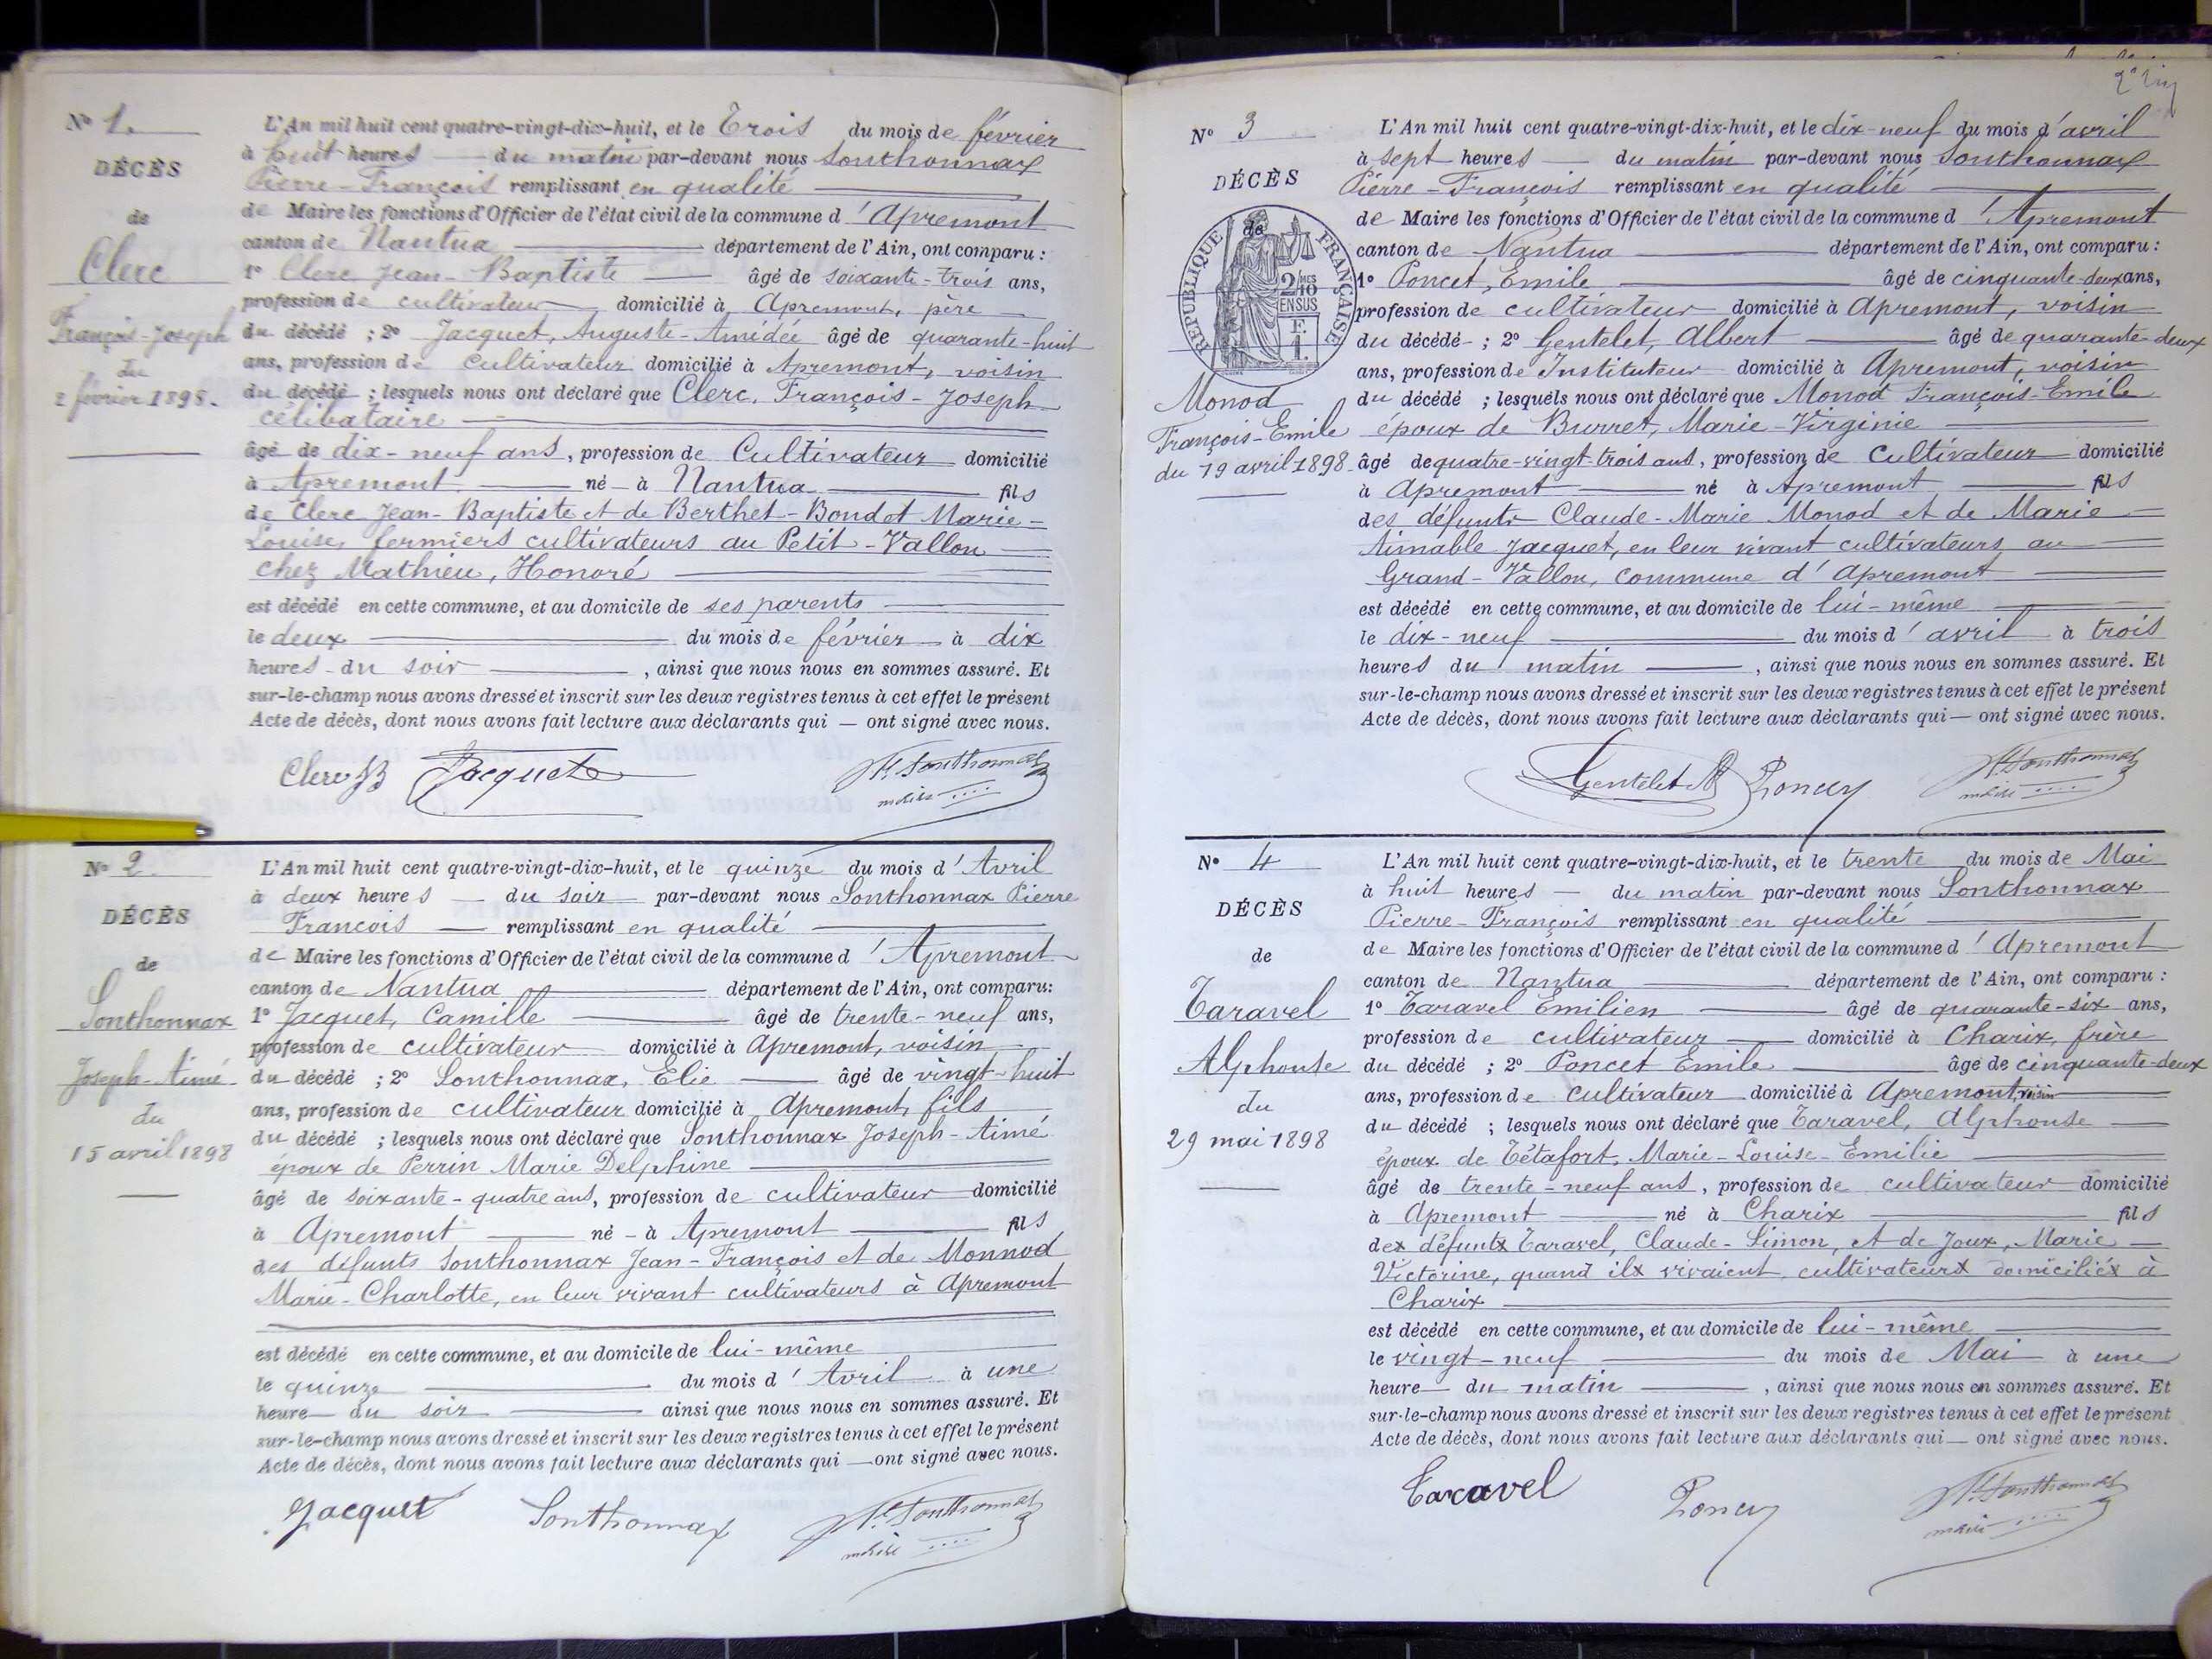 N° 1.
DÉCÈS
de
Clerc
François-Joseph
du
2 février 1898.
L'An mil huit cent quatre-vingt-dix-huit, et le Trois du mois de février
à huit heures du matin par-devant nous Sonthonnax
Pierre-François remplissant en qualité
de Maire les fonctions d'Officier de l'état civil de la commune d'Apremont
canton de Nantua département de l'Ain, ont comparu :
1° Clerc Jean-Baptiste âgé de soixante-trois ans,
profession de cultivateur domicilié à Apremont, père
du décédé ; 2° Jacquet, Auguste-Amédée âgé de quarante-huit
ans, profession de cultivateur domicilié à Apremont, voisin
du décédé ; lesquels nous ont déclaré que Clerc, François-Joseph
célibataire
âgé de dix-neuf ans, profession de Cultivateur domicilié
à Apremont né à Nantua fils
de Clerc Jean-Baptiste et de Berthet-Bondot Marie-
Louise, fermiers cultivateurs au Petit-Vallon
chez Mathieu, Honoré
est décédé en cette commune, et au domicile de ses parents
le deux du mois de février à dix
heures du soir, ainsi que nous nous en sommes assuré. Et
sur-le-champ nous avons dressé et inscrit sur les deux registres tenus à cet effet le présent
Acte de décès, dont nous avons fait lecture aux déclarants qui — ont signé avec nous.
Clerc JB Jacquet Pre Sonthonnax
maire
N° 2.
DÉCÈS
de
Sonthonnax
Joseph-Aimé
du
15 avril 1898
L'An mil huit cent quatre-vingt-dix-huit, et le quinze du mois d'Avril
à deux heures du soir par-devant nous Sonthonnax Pierre
François remplissant en qualité
de Maire les fonctions d'Officier de l'état civil de la commune d'Apremont
canton de Nantua département de l'Ain, ont comparu:
1° Jacquet, Camille âgé de trente-neuf ans,
profession de cultivateur domicilié à Apremont, voisin
du décédé ; 2° Sonthonnax, Elie âgé de vingt-huit
ans, profession de cultivateur domicilié à Apremont, fils
du décédé ; lesquels nous ont déclaré que Sonthonnax Joseph-Aimé
époux de Perrin Marie Delphine
âgé de soixante-quatre ans, profession de cultivateur domicilié
à Apremont né à Apremont fils
des défunts Sonthonnax Jean-François et de Monnod
Marie-Charlotte, en leur vivant cultivateurs à Apremont
est décédé en cette commune, et au domicile de lui-même
le quinze du mois d'Avril à une
heure du soir ainsi que nous nous en sommes assuré. Et
sur-le-champ nous avons dressé et inscrit sur les deux registres tenus à cet effet le présent
Acte de décès, dont nous avons fait lecture aux déclarants qui — ont signé avec nous.
Jacquet Sonthonnax Pre Sonthonnax
maire
N° 3
DÉCÈS
de
RÉPUBLIQUE FRANÇAISE
2/10 MES
EN SUS
Monod
François-Emile
du 19 avril 1898
L'An mil huit cent quatre-vingt-dix-huit, et le dix-neuf du mois d'avril
à sept heures du matin par-devant nous Sonthonnax
Pierre-François remplissant en qualité
de Maire les fonctions d'Officier de l'état civil de la commune d'Apremont
canton de Nantua département de l'Ain, ont comparu :
1° Poncet, Emile âgé de cinquante-deux ans,
profession de cultivateur domicilié à Apremont, voisin
du décédé ; 2° Gentelet, Albert âgé de quarante-deux
ans, profession de Instituteur domicilié à Apremont, voisin
du décédé ; lesquels nous ont déclaré que Monod François-Emile
époux de Burret, Marie-Virginie
âgé de quatre-vingt-trois ans, profession de Cultivateur domicilié
à Apremont né à Apremont fils
des défunts Claude-Marie Monod et de Marie
Aimable Jacquet, en leur vivant cultivateurs au
Grand-Vallon, commune d'Apremont
est décédé en cette commune, et au domicile de lui-même
le dix-neuf du mois d'avril à trois
heures du matin, ainsi que nous nous en sommes assuré. Et
sur-le-champ nous avons dressé et inscrit sur les deux registres tenus à cet effet le présent
Acte de décès, dont nous avons fait lecture aux déclarants qui — ont signé avec nous.
Gentelet A Poncet Pre Sonthonnax
maire
N° 4
DÉCÈS
de
Taravel
Alphonse
du
29 mai 1898
L'An mil huit cent quatre-vingt-dix-huit, et le trente du mois de Mai
à huit heures — du matin par-devant nous Sonthonnax
Pierre-François remplissant en qualité
de Maire les fonctions d'Officier de l'état civil de la commune d'Apremont
canton de Nantua département de l'Ain, ont comparu :
1° Taravel Emilien âgé de quarante-six ans,
profession de cultivateur domicilié à Charix, frère
du décédé ; 2° Poncet Emile âgé de cinquante-deux
ans, profession de cultivateur domicilié à Apremont, voisin
du décédé ; lesquels nous ont déclaré que Taravel, Alphonse
époux de Tétafort, Marie-Louise-Emilie
âgé de trente-neuf ans, profession de cultivateur domicilié
à Apremont né à Charix fils
des défunts Taravel, Claude-Simon, et de Joux, Marie
Victorine, quand ils vivaient cultivateurs domiciliés à
Charix
est décédé en cette commune, et au domicile de lui-même
le vingt-neuf du mois de Mai à une
heure du matin, ainsi que nous nous en sommes assuré. Et
sur-le-champ nous avons dressé et inscrit sur les deux registres tenus à cet effet le présent
Acte de décès, dont nous avons fait lecture aux déclarants qui — ont signé avec nous.
Taravel Poncet Pre Sonthonnax
maire